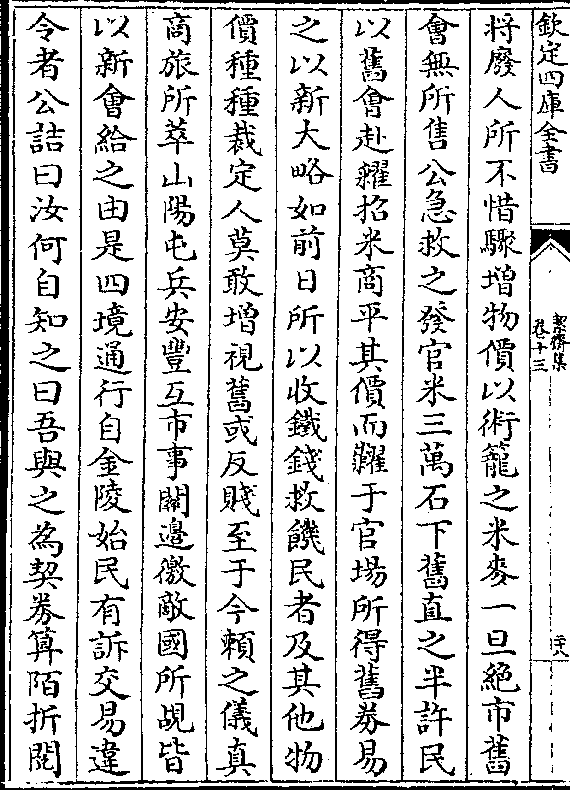 欽定四庫全書
絜齋集
卷十三
將廢人所不惜驟增物價以術籠之米麥一旦絕市舊
會無所售公急救之發官米三萬石下舊直之半許民
以舊會赴糴招米商平其價而糴于官場所得舊券易
之以新大略如前日所以收鐵錢救饑民者及其他物
價種種裁定人莫敢增視舊或反賤至于今賴之儀真
商旅所萃山陽屯兵安豐互市事關邊徼敵國所覘皆
以新會給之由是四境通行自金陵始民有訴交易違
令者公詰曰汝何自知之曰吾與之為契券算陌折閱